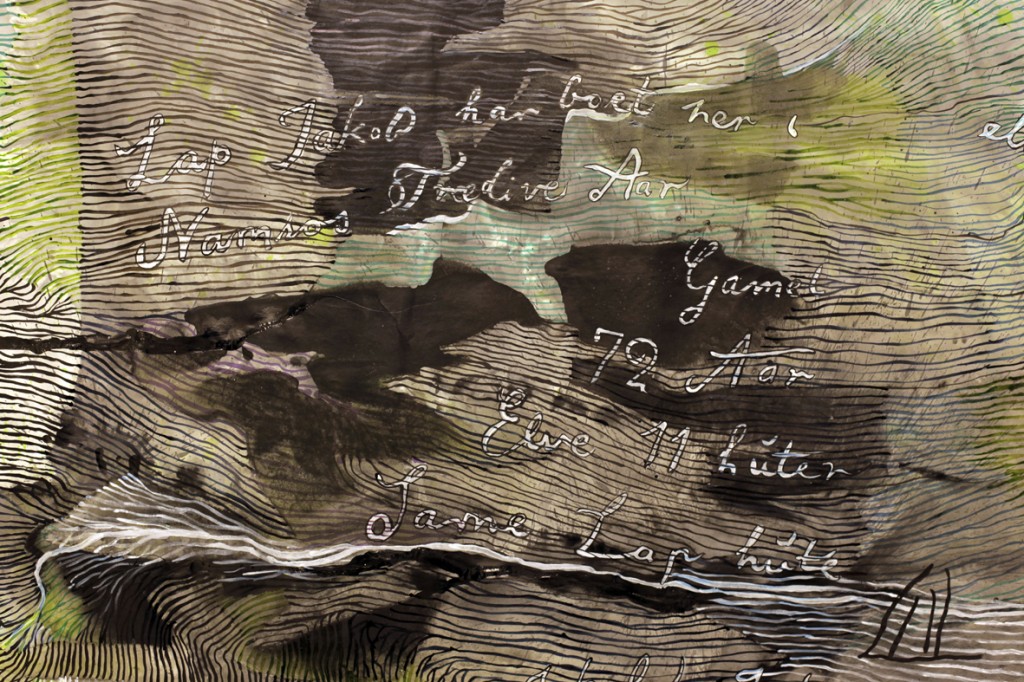 Lap Jakob han boet her i
Namsos Tredive Aar
Gamel
72 Aar
Elve 11 hüter
Same Lap hüte